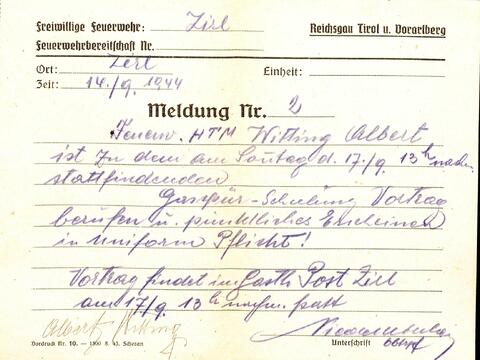 Freiwillige Feuerwehr: Zirl
Reichsgau Tirol u. Vorarlberg
Feuerwehrbereitschaft Nr.
Ort: Zirl
Einheit:
Zeit: 14./9. 1944
Meldung Nr. 2
Feuerw. HTM Witting Albert
ist zu dem am Sontag d. 17./9. 13h nachm.
stattfindenden
Gasspür-Schulung Vortrag
berufen u. pünktliches Erscheinen
in Uniform Pflicht!
Vortrag findet im Gasth. Post Zirl
am 17/9. 13h nachm. statt
Albert Witting
Vordruck Nr. 10. – 1300 8. 43. Scheran
Unterschrift